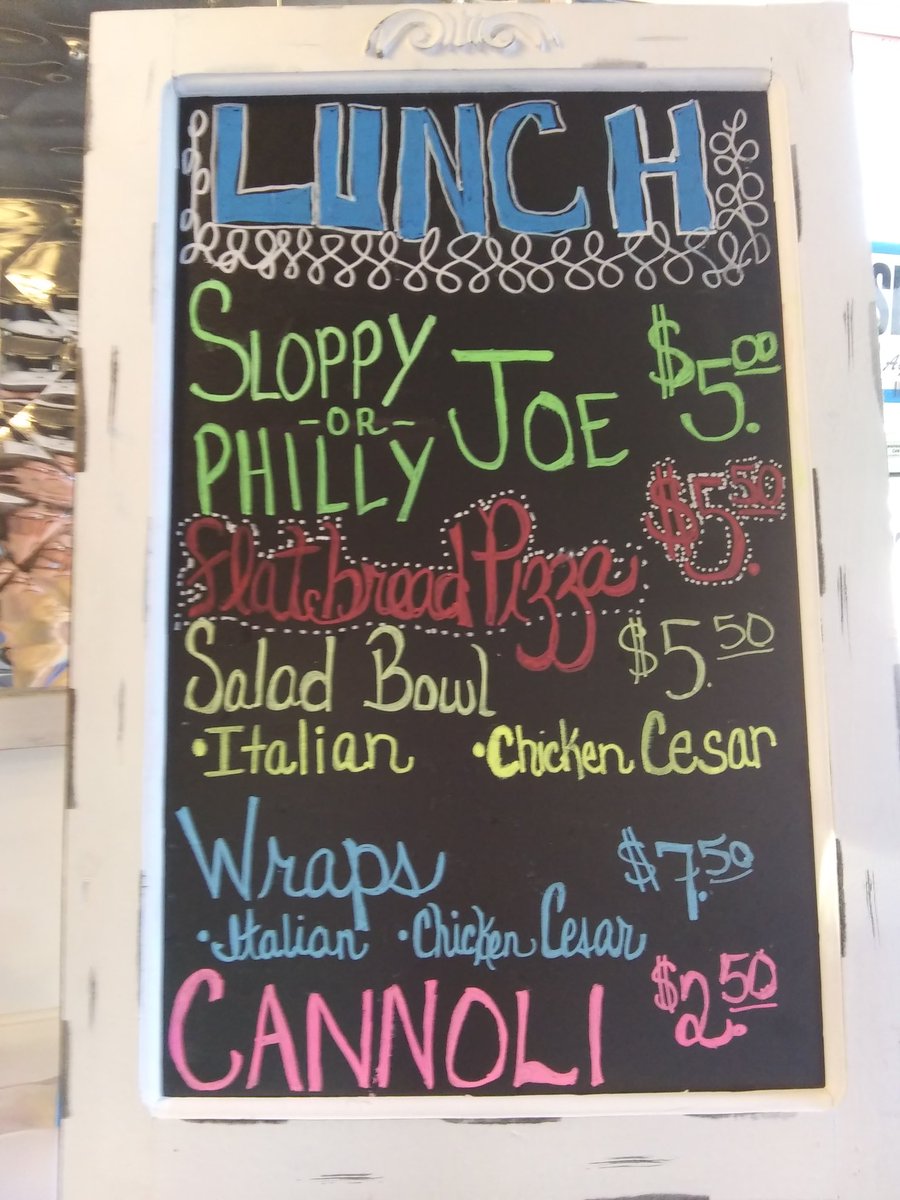 LUNCH
SLOPPY JOE $5.00
-OR-
PHILLY
Flatbread Pizza $5.50
Salad Bowl $5.50
•Italian •Chicken Cesar
Wraps $7.50
•Italian •Chicken Cesar
CANNOLI $2.50